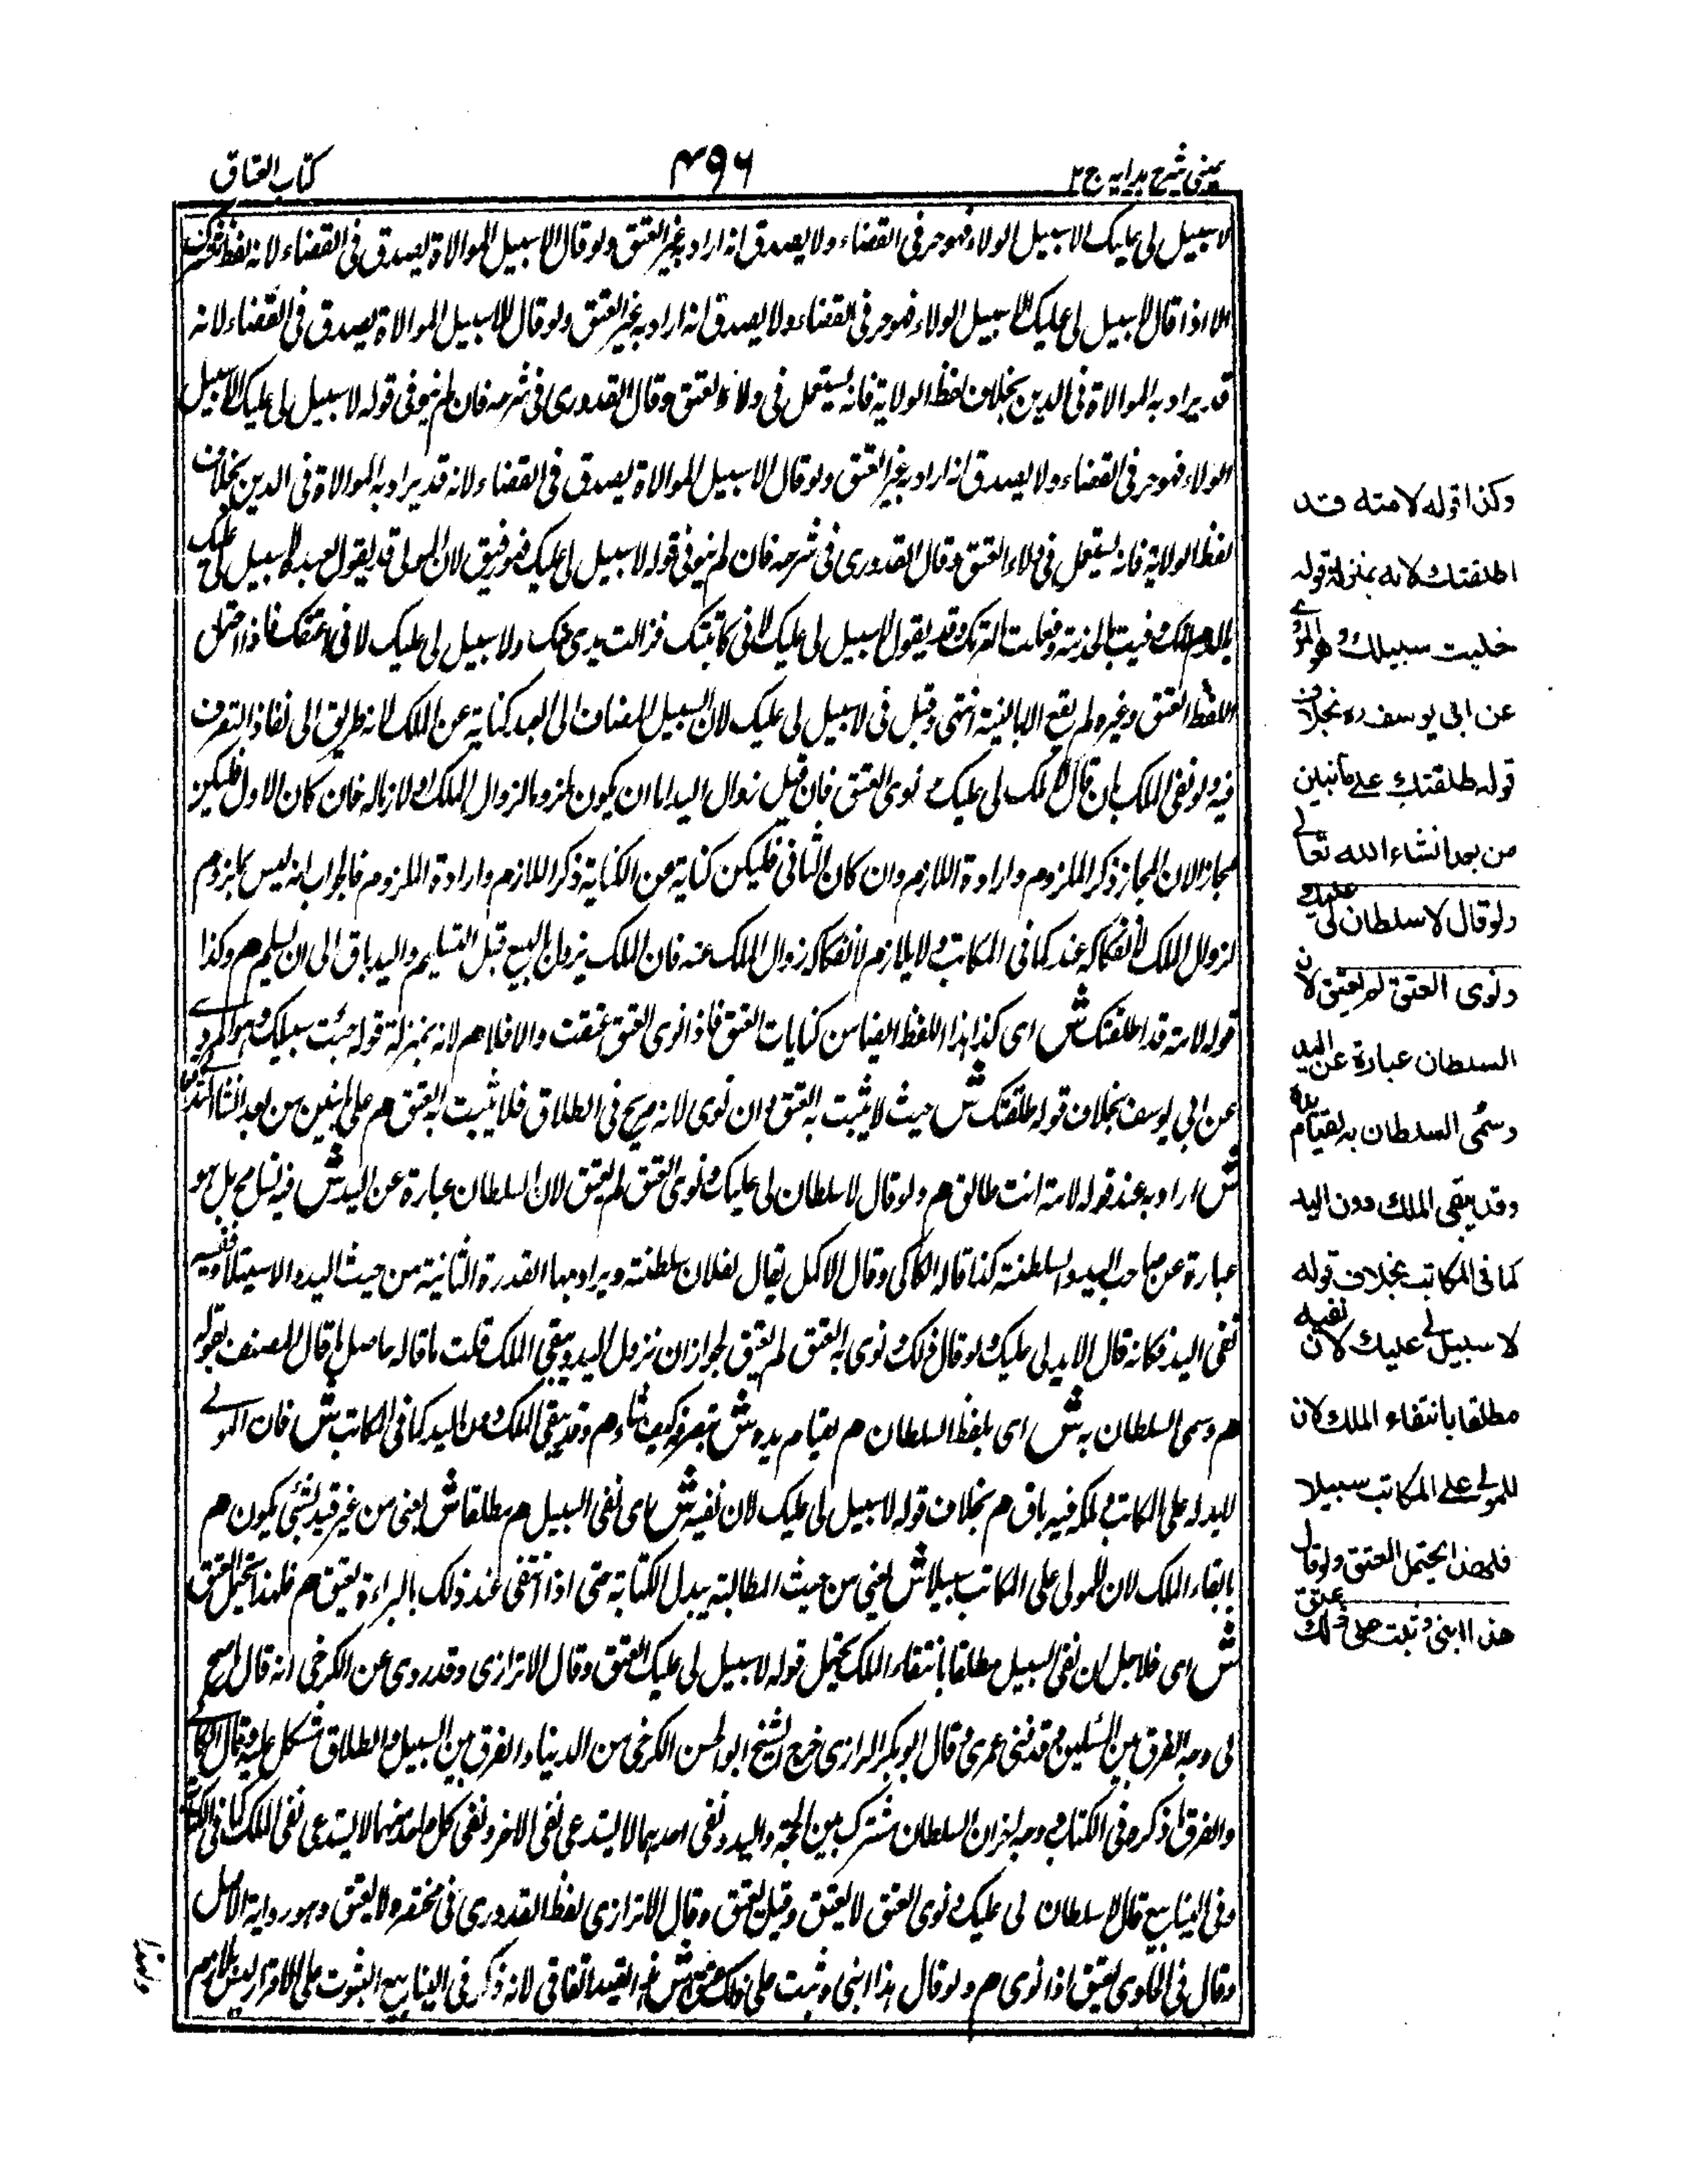 عينى شرح هدايه ج٢
٤٩٦
كتاب العتاق
لاسبيل لى عليك الا سبيل الولاء فهو حر فى القضاء ولا يصدق انه اراد به غير العتق ولو قال الا سبيل الموالاة يصدق فى القضاء لانه لفظ
الا اذا قال لا سبيل لى عليك الا سبيل الولاء فهو حر فى القضاء ولا يصدق انه اراد به غير العتق ولو قال الا سبيل الموالاة يصدق فى القضاء لانه
قد يراد به الموالاة فى الدين بخلاف لفظ الولاية فانه يستعمل فى ولاء العتق وقال القدورى فى شرحه فان لم ينو فى قوله لا سبيل لى عليك الا سبيل
الولاء فهو حر فى القضاء ولا يصدق انه اراد به غير العتق ولو قال الا سبيل الموالاة يصدق فى القضاء لانه قد يراد به الموالاة فى الدين بخلاف
لفظ الولاية فانه يستعمل فى ولاء العتق وقال القدورى فى شرحه فان لم ينو فى قوله لا سبيل لى عليك فهو رقيق لان المولى قد يقول لعبده لا سبيل لى عليك
وقد يقول لا سبيل لى عليك لانى كاتبتك فزالت يدى عنك ولا سبيل لى عليك لانى اعتقتك فاذا احتمل
اللفظ العتق وغيره لم يقع الا بالنية انتهى وقيل فى لا سبيل لى عليك لان السبيل المضاف الى العبد كناية عن الملك لانه طريق الى نفاذ التصرف
فيه ولو نفى الملك بان قال لا ملك لى عليك ونوى العتق فان قيل زوال اليد اما ان يكون ملزوما لزوال الملك او لازما له فان كان الاول فليكن
مجازا لان المجاز ذكر الملزوم وارادة اللازم وان كان الثانى فليكن كناية عن الكناية ذكر اللازم وارادة الملزوم فالجواب انه ليس بملزوم
لزوال الملك لانفكاكه عنه كما فى المكاتب ولا بلازم لانفكاك زوال الملك عنه فان الملك يزول بالبيع قبل التسليم واليد باق الى ان يسلم هم وكذا
قوله لامته قد اطلقتك ش اى كذا هذا اللفظ ايضا من كنايات العتق فاذا نوى العتق عتقت والا فلا هم لانه بمنزلة قوله خليت سبيلك وهو المروى
عن ابى يوسف بخلاف قوله طلقتك ش حيث لا يثبت به العتق وان نوى لانه صريح فى الطلاق فلا يثبت به العتق هم على ما نبين من بعد ان شاء الله تعالى
ش اراد به عند قوله لامته انت طالق هم ولو قال لا سلطان لى عليك ونوى العتق لم يعتق لان السلطان عبارة عن اليد ش فيه تسامح بل هو
عبارة عن صاحب اليد والسلطنة كذا قاله الكاكى وقال الاكمل يقال لفلان سلطنة ويراد بها القدرة الثانية من حيث اليد والاستيلاء
نفى اليد فكانه قال لا يد لى عليك ولو قال ذلك ونوى به العتق لم يعتق لجواز ان تزول اليد ويبقى الملك قلت ما قاله حاصل ما قال المصنف بقوله
هم وسمى السلطان به ش اى بلفظ السلطان هم لقيام يده ش بتصرفه كيف شاء هم وقد يبقى الملك دون اليد كما فى المكاتب ش فان المولى
لا يد له على المكاتب وملكه فيه باق هم بخلاف قوله لا سبيل لى عليك لان نفيه ش اى نفى السبيل هم مطلقا ش يعنى من غير قيد بشئ يكون هم
بانتفاء الملك لان للمولى على المكاتب سبيلا ش يعنى من حيث المطالبة ببدل الكتابة حتى اذا انتفى عنه ذلك بالبراءة يعتق هم فلهذا يحتمل العتق
ش اى فلاجل ان نفى السبيل مطلقا بانتفاء الملك يحتمل قوله لا سبيل لى عليك العتق وقال الاترازى وقد روى عن الكرخى انه قال
لى وجه الفرق بين المسئلتين وقد فنى عمرى وقال ابو بكر الرازى خرج الشيخ ابو الحسن الكرخى من الدنيا والفرق بين السبيل والطلاق مشكل عليه وقال
والفرق ما ذكره فى الكتاب ووجه اخر ان السلطان مشترك بين الحجة واليد ونفى احدهما لا يستدعى نفى الاخر ونفى كل واحد منهما لا يستدعى نفى الملك كما فى
وفى الينابيع قال لا سلطان لى عليك ونوى العتق لا يعتق وقيل يعتق وقال الاترازى لفظ القدورى فى مختصره ولا يعتق وهو رواية الاصل
وقال فى الحاوى يعتق اذا نوى هم ولو قال هذا ابنى وثبت على ذلك عتق ش هذا القيد اتفاقى لانه ذكر فى الينابيع الثبوت على الاقرار ليس بلازم
وكذا قوله لامته قد
اطلقتك لانه بمنزلة قوله
خليت سبيلك وهو المروى
عن ابى يوسف ره بخلاف
قوله طلقتك على ما نبين
من بعد انشاء الله تعالى
ولو قال لا سلطان لى عليك
ونوى العتق لم يعتق لان
السلطان عبارة عن اليد
وسمى السلطان به لقيام يده
وقد يبقى الملك دون اليد
كما فى المكاتب بخلاف قوله
لا سبيل لى عليك لان نفيه
مطلقا بانتفاء الملك لان
للمولى على المكاتب سبيلا
فلهذا يحتمل العتق ولو قال
هذا ابنى وثبت على ذلك عتق